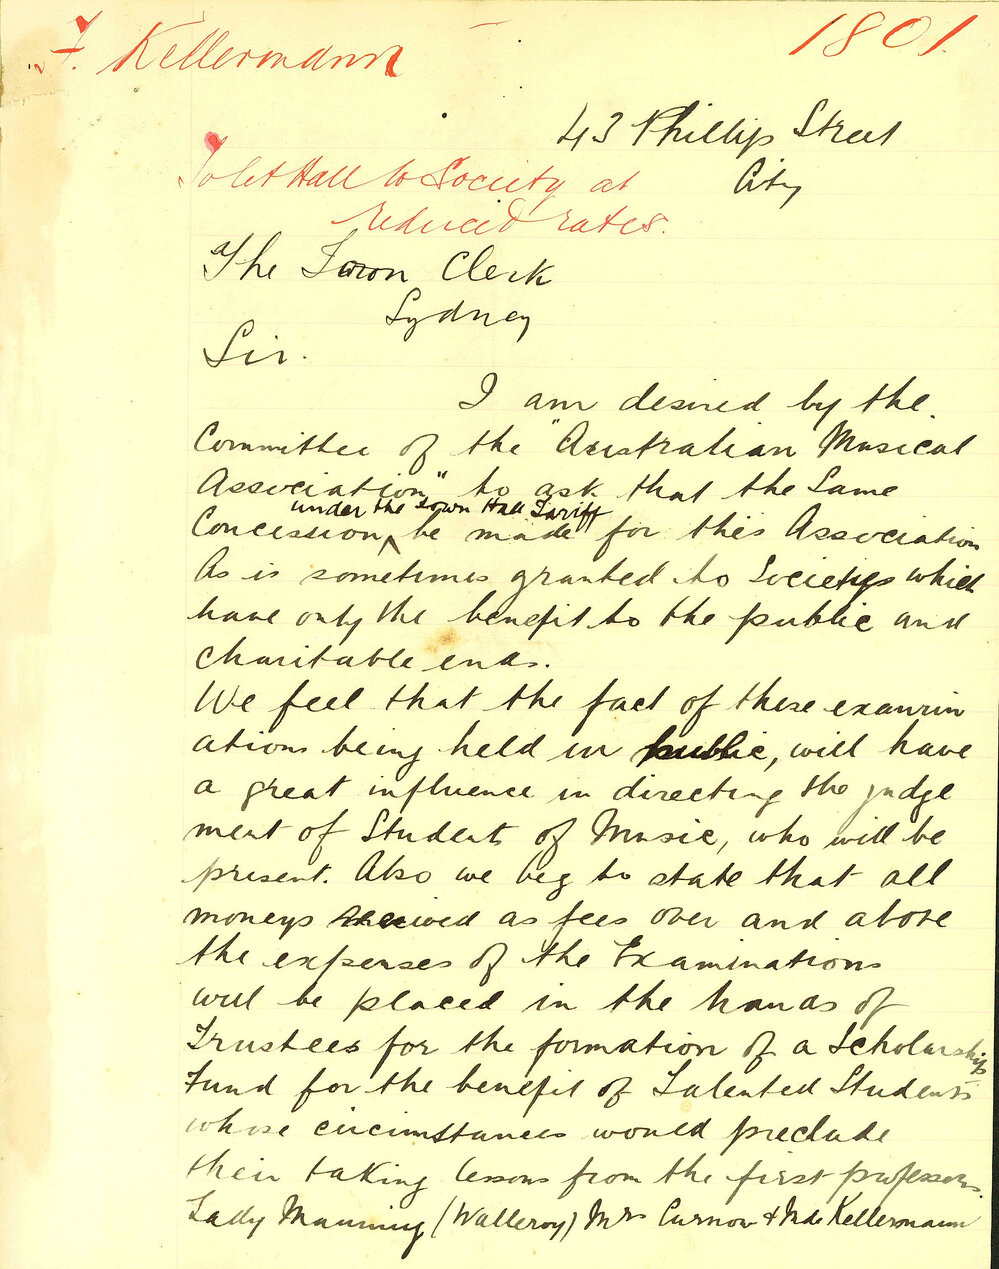 F. Kellermann
1801.
43 Phillip Street
City
To let Hall to Society at
reduced rates.
The Town Clerk
Sydney
Sir.
I am desired by the
Committee of the "Australian Musical
Association" to ask that the Same
under the Town Hall Tariff
Concession ^ be made for this Association
As is sometimes granted to Societys which
have only the benefit to the public and
charitable ends.
We feel that the fact of these examin
ations being held in public, will have
a great influence in directing the judge
ment of Students of Music, who will be
present. Also we beg to state that all
moneys received as fees over and above
the expenses of the Examinations
will be placed in the hands of
Trustees for the formation of a Scholarship
Fund for the benefit of Talented Students
whose circumstances would preclude
their taking lessons from the first professors.
Lady Manning (Walleroy) Mrs Curnow & Mde Kellermann